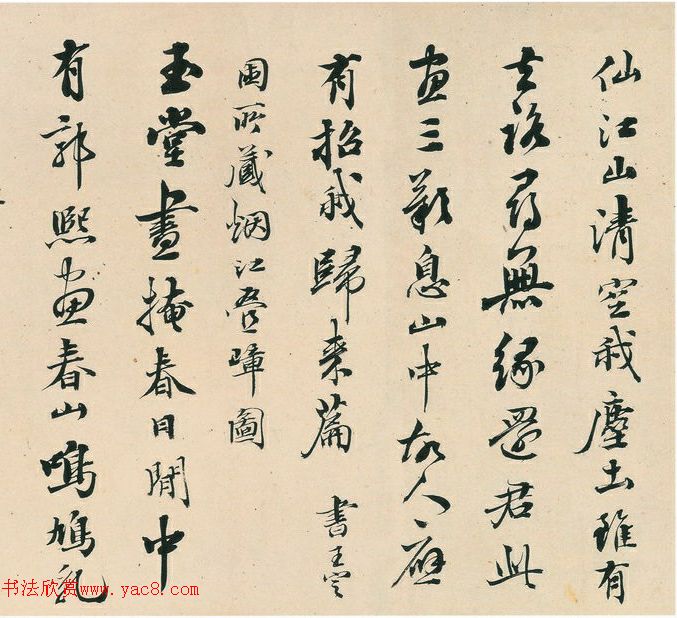 仙江山清空我塵土雖有
去路尋無緣還君此
畫三歎息山中故人應
有招我歸來篇 書王定
國所藏烟江疊嶂圖
玉堂晝掩春日閒中
有郭熙畫春山鳴鳩乳
书法欣赏 www.yac8.com